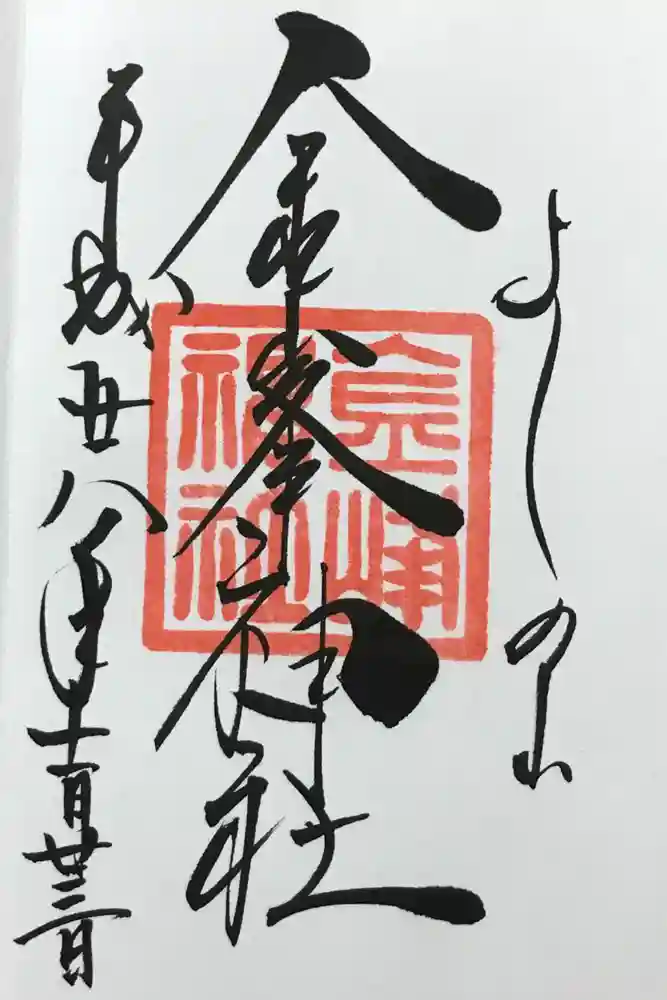 よしの山
金峯神社
金峰
神社
平成廿八年十一月廿三日